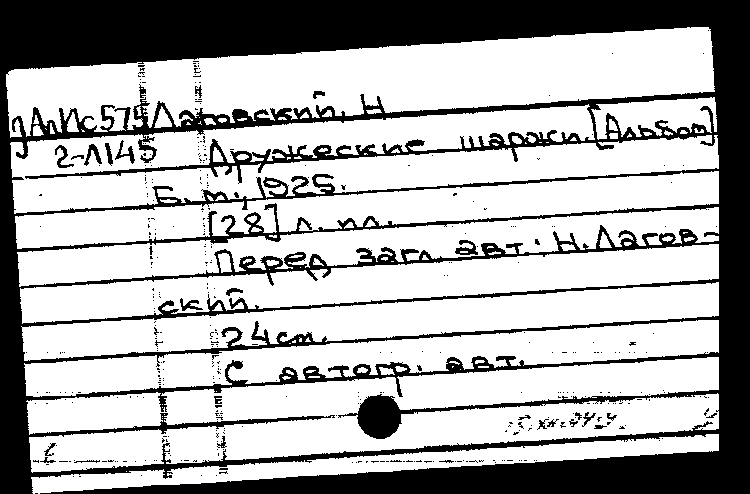 АлИс575 Лаговский, Н
2-Л145 Дружеские шаржи. [Альбом]
Б. м., 1925.
[28] л. ил.
Перед загл. авт.: Н. Лагов-
ский.
24 см.
С автогр. авт.